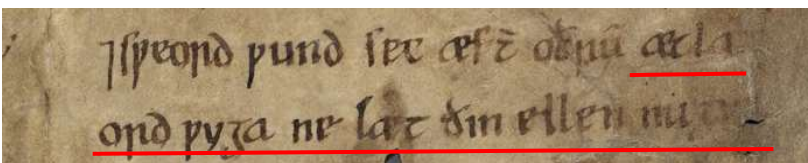 ⁊sƿeord ƿund sec æft̄ oðrū ætla
ord ƿyga ne læt ðin ellen nu